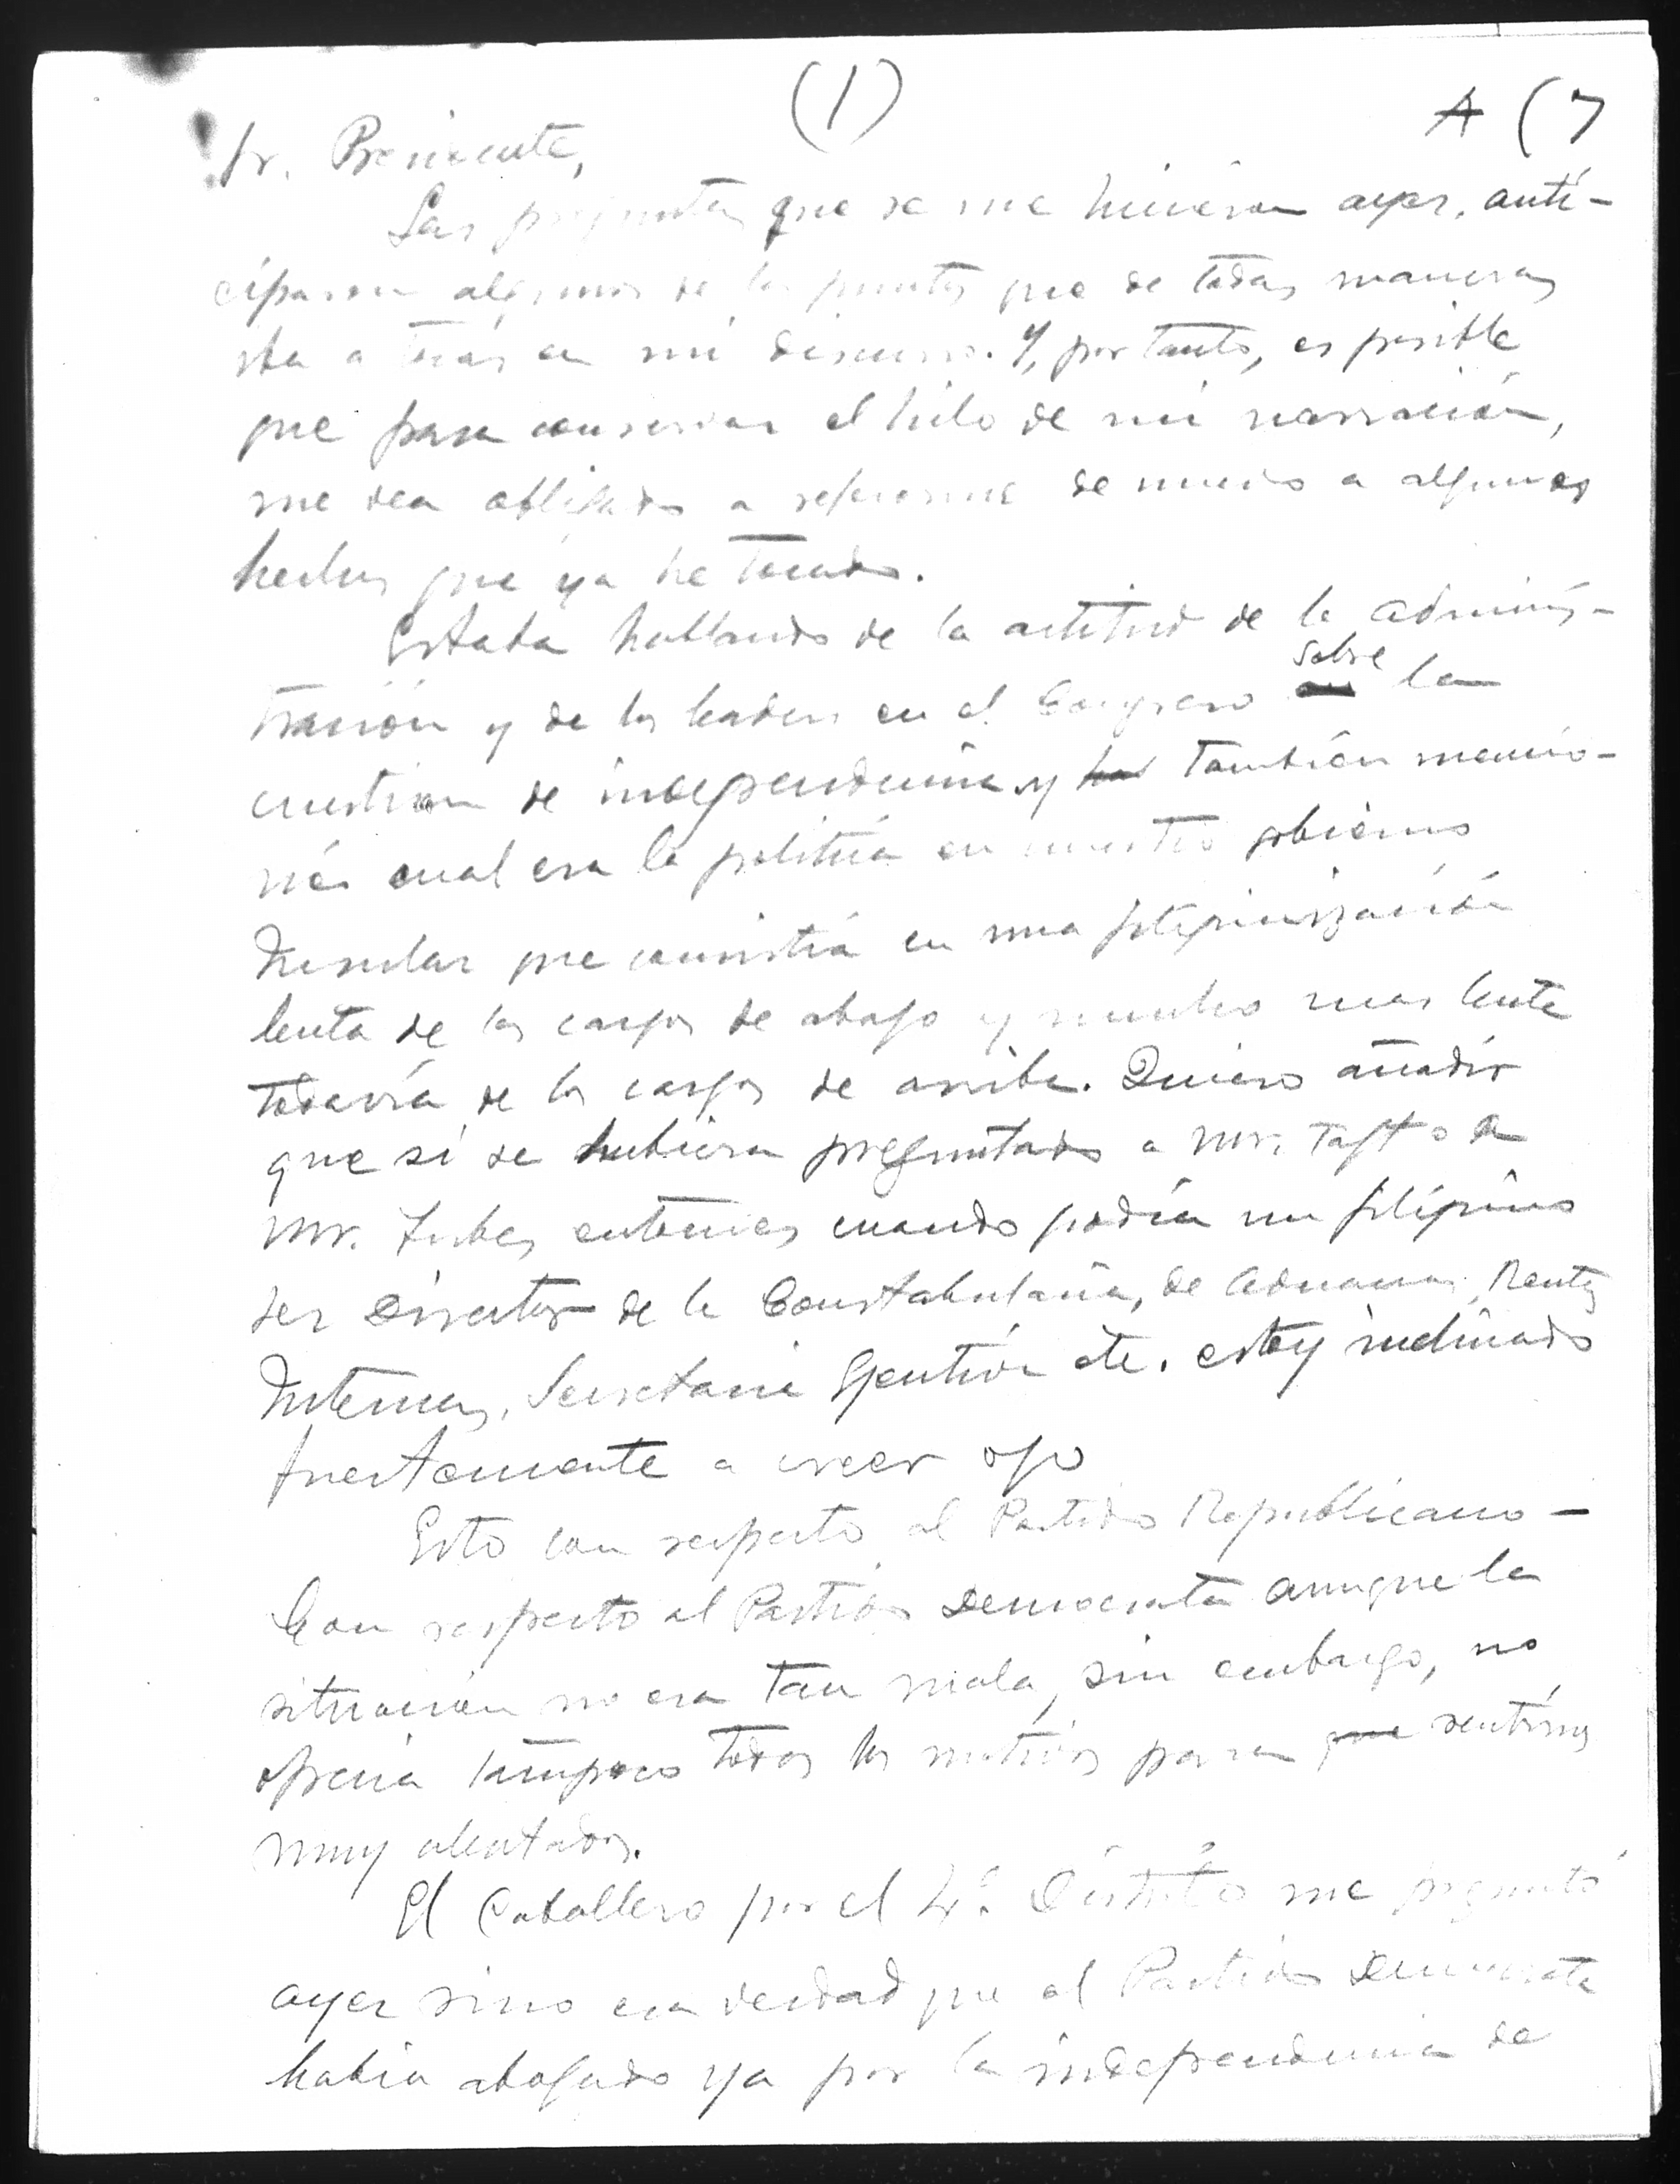 (1)
A (7
Sr. Presidente,
Las preguntas que se me hicieron ayer, anti-
ciparon algunos de los puntos que de todas maneras
iba a tocar en mi discurso. Y, por tanto, es posible
que para conservar el hilo de mi narración,
me vea obligado a referirme de nuevo a algunos
hechos que ya he tocado.
Estaba hablando de la actitud de la adminis-
tración y de los leaders en el Congreso sobre la
cuestion de independencia y también mencio-
né cual era la politica en nuestro gobierno
Insular que consistía en una filipinización
lenta de los cargos de abajo y mucho mas lenta
todavía de los cargos de arriba. Quiero añadir
que si se hubiera preguntado a Mr. Taft o a
Mr. Forbes entonces cuando podía un filipino
ser Director de la Constabularia, de Aduanas, Rentas
Internas, Secretario Ejecutivo etc. estoy inclinado
fuertemente a creer ojo
Esto con respecto al Partido Republicano —
Con respecto al Partido Democrata aunque la
situacion no era tan mala, sin embargo, no
ofrecia tampoco todos los motivos para que sentirnos
muy alentados.
El Caballero por el 4º Distrito me preguntó
ayer sino era verdad que el Partido Democrata
habia abogado ya por la independencia de